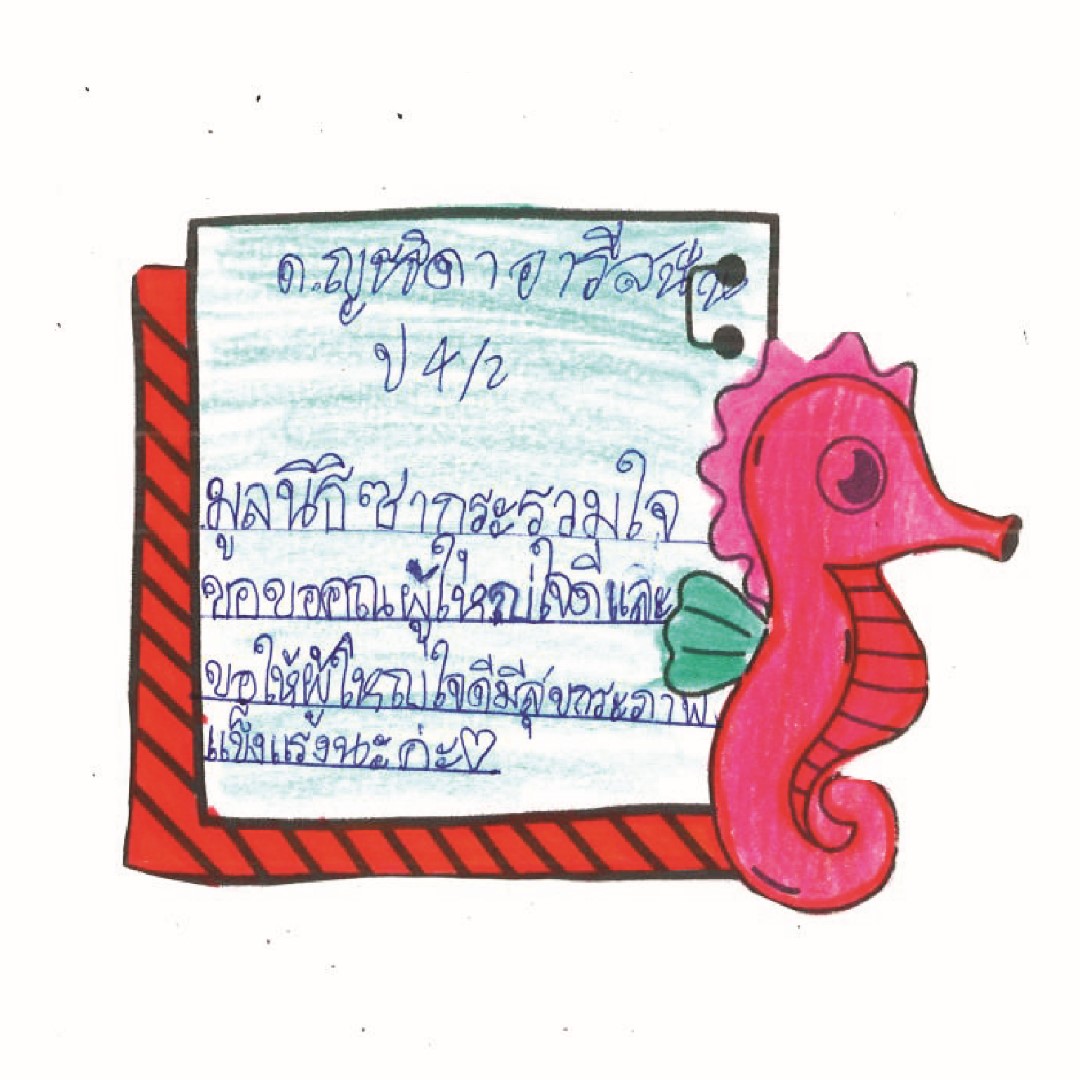 ด.ญชชิดา อารีสนั่น
ป 4/2
มูลนิธิซากระรวมใจ
ขอขอคณผู้ใหญ่ใจดีและ
ขอให้ผู้ใหญ่ใจดีมีสุขกระภาพ
แข็งแร้งนะค่ะ♡